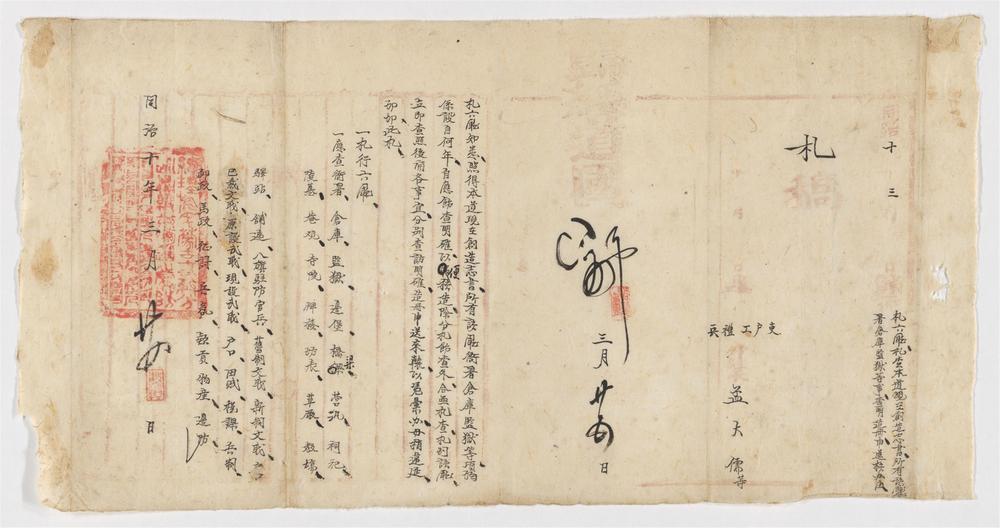 同治十 三
札六廳札查本道現在創造志書所有該廳衙
署倉庫監獄等事查明造冊申送核辦由
札稿
吏戶工禮兵
孟大儒等
三月廿五日
札六廳知悉照得本道現在創造志書所有該廳衙署倉庫監獄等項
係設自何年自應飭查明確以便核造除分札飭查外合亟札查札到該廳
立即查照後開各事宜分別查訪明確造冊申送來轅以憑彙辦毋稍遲延
切切此札
一札行六廳
一應查衙署 倉庫 監獄 邊堡 橋樑 營汛 祠祀
陵墓 巷观 寺院 牌樓 坊表 草廠 教場
驛站 鋪遞 八旗駐防官兵 舊制文職 新制文職
已裁文職 原設武職 現設武職 戶口 田賦 稅課 兵制
郵政 馬政 物產 邊防
同治十年三月廿五日